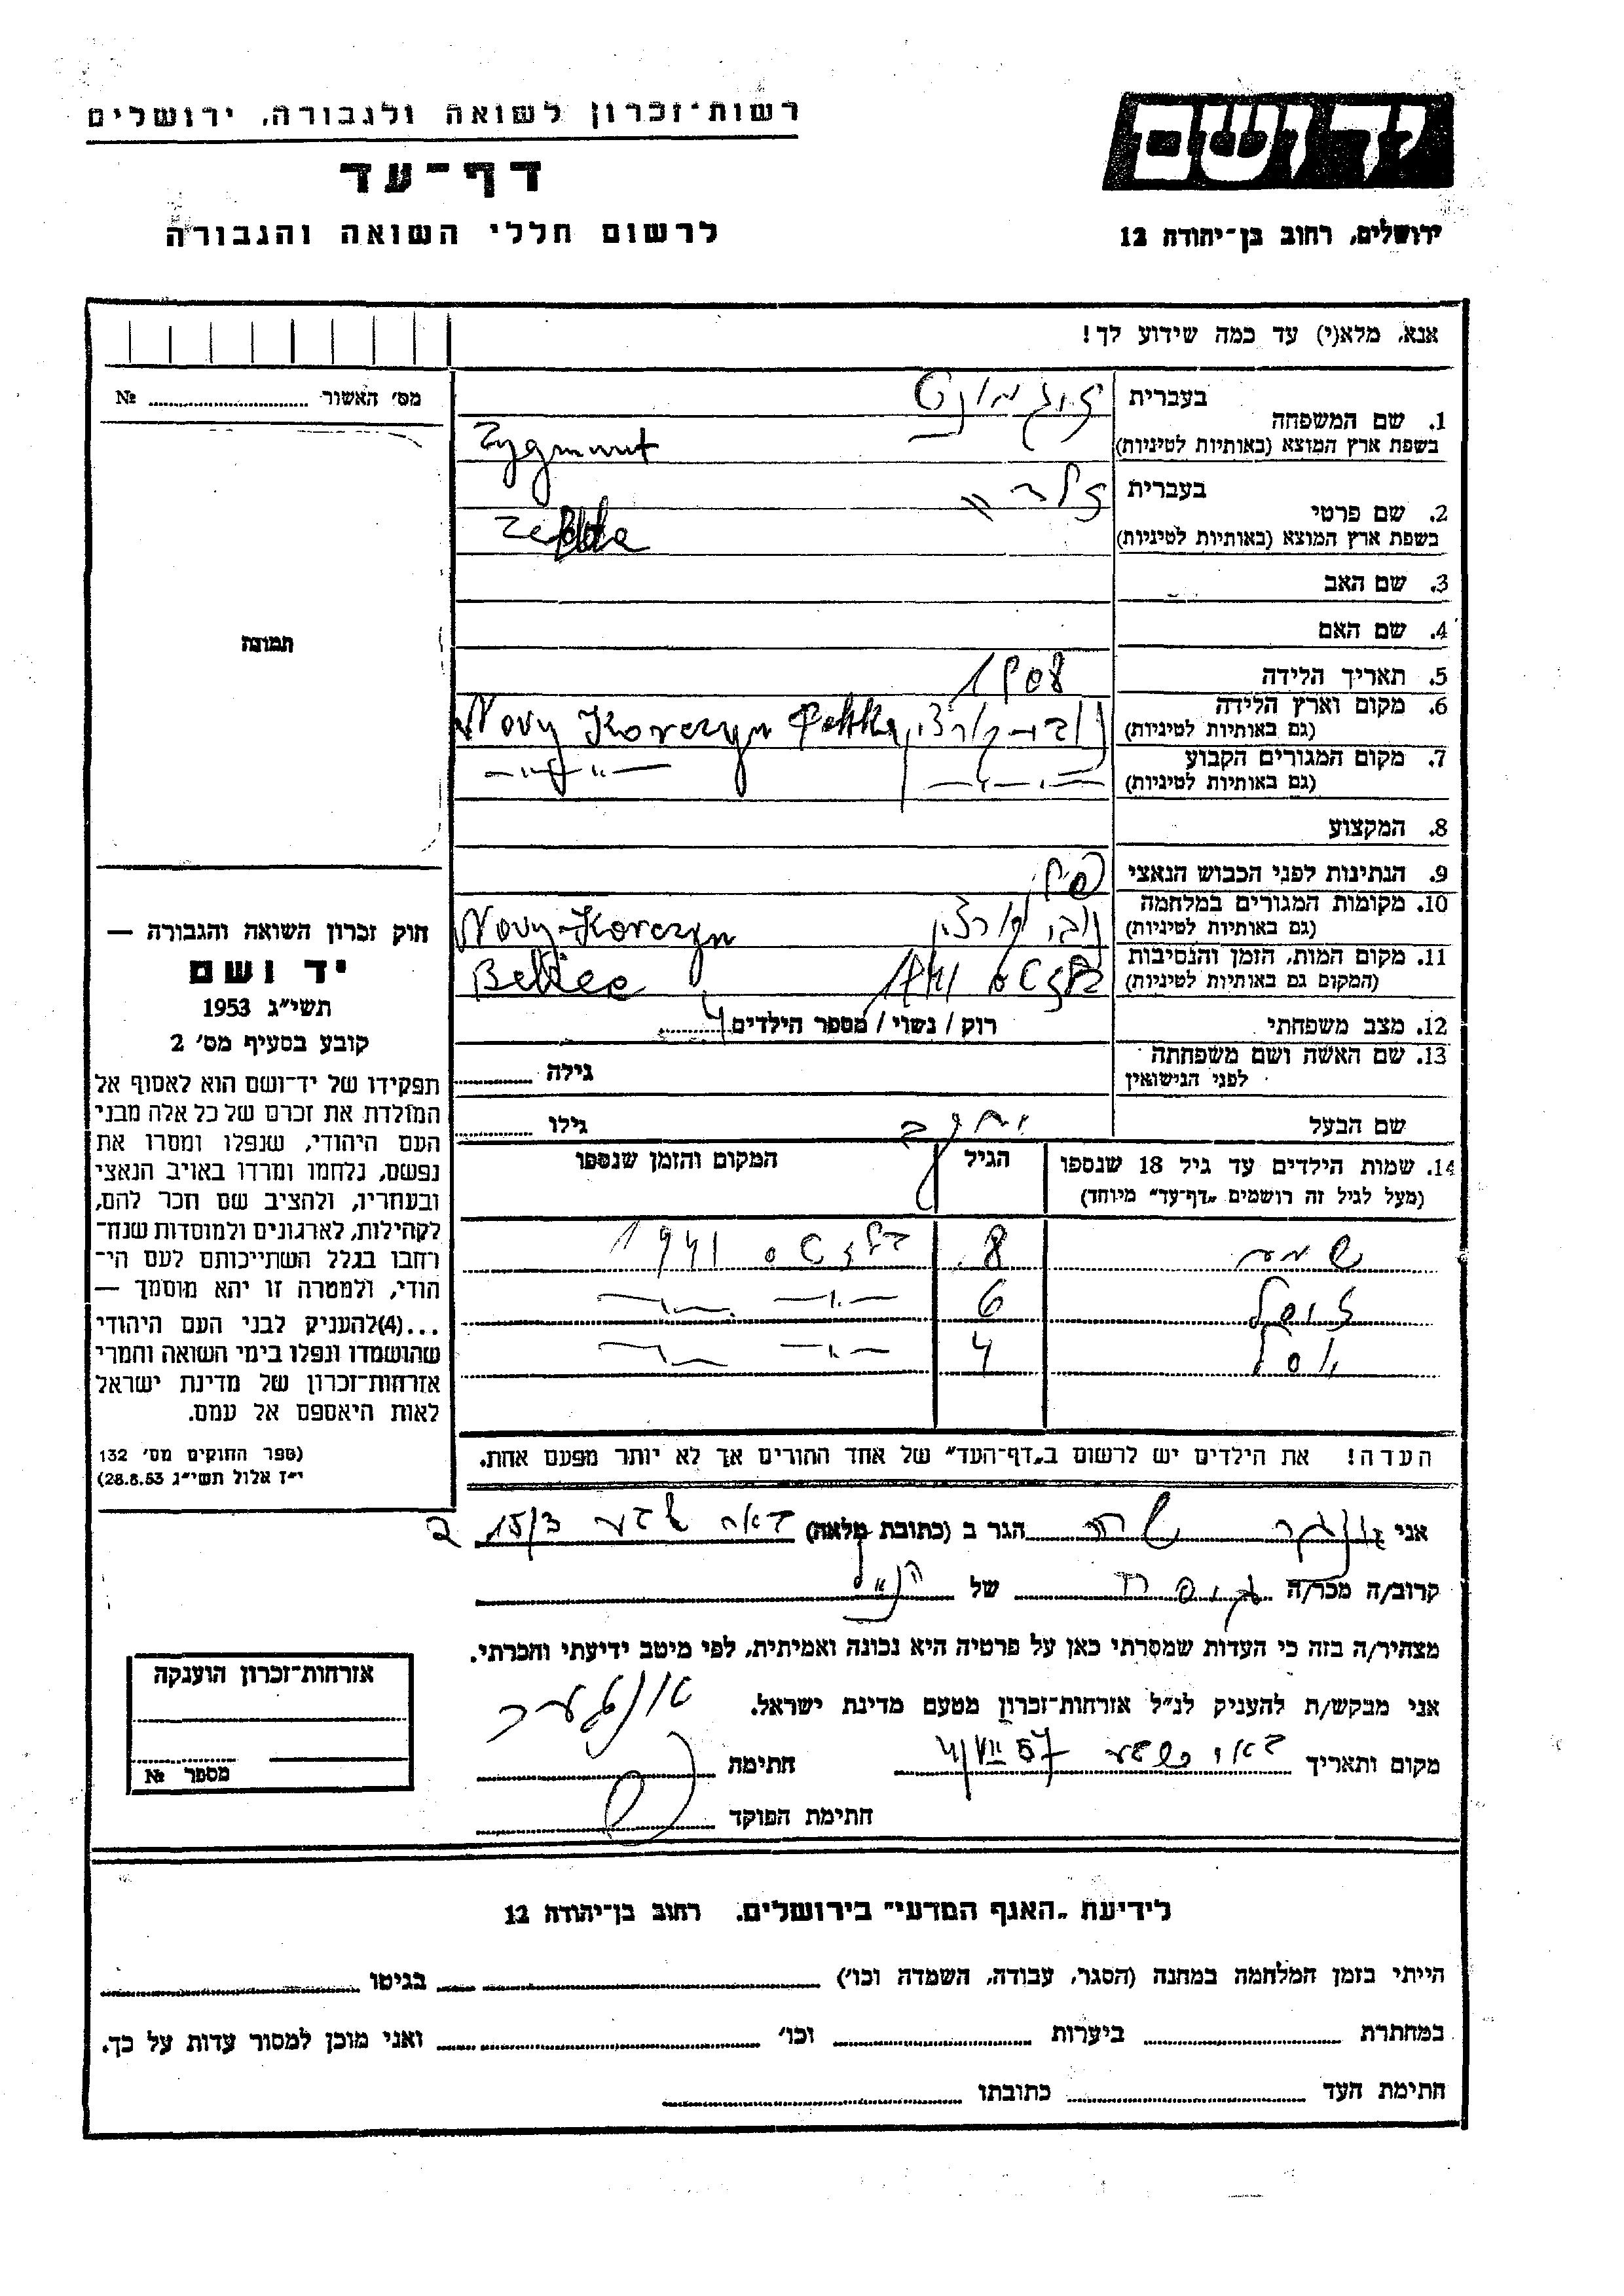 רשות־זכרון לשואה ולגבורה, ירושלים
יד ושם
דף־עד
לרשום חללי השואה והגבורה
ירושלים, רחוב בן־יהודה 12
אנא, מלא(י) עד כמה שידוע לך!
מס׳ האשור № 
תמונה
1. שם המשפחה
בעברית זיגמונט
בשפת ארץ המוצא (באותיות לטיניות) Zygmunt
2. שם פרטי
בעברית
בשפת ארץ המוצא (באותיות לטיניות)
3. שם האב
4. שם האם
5. תאריך הלידה 1908
6. מקום וארץ הלידה
(גם באותיות לטיניות) Novy Korczyn
7. מקום המגורים הקבוע
(גם באותיות לטיניות) —〃—
8. המקצוע
9. הנתינות לפני הכבוש הנאצי
10. מקומות המגורים במלחמה
(גם באותיות לטיניות) Novy-Korczyn
11. מקום המות, הזמן והנסיבות 1941
(המקום גם באותיות לטיניות)
12. מצב משפחתי רוק / נשוי / מספר הילדים 4
13. שם האשה ושם משפחתה
לפני הנישואין גילה
שם הבעל יעקב גילו
14. שמות הילדים עד גיל 18 שנספו הגיל המקום והזמן שנספו
(מעל לגיל זה רושמים „דף־עד״ מיוחד)
8 1941
6 —〃— —〃—
4 —〃— —〃—
הערה! את הילדים יש לרשום ב„דף־העד״ של אחד ההורים אך לא יותר מפעם אחת.
חוק זכרון השואה והגבורה —
יד ושם
תשי״ג 1953
קובע בסעיף מס׳ 2
תפקידו של יד־ושם הוא לאסוף אל
המולדת את זכרם של כל אלה מבני
העם היהודי, שנפלו ומסרו את
נפשם, נלחמו ומרדו באויב הנאצי
ובעוזריו, ולהציב שם וזכר להם,
לקהילות, לארגונים ולמוסדות שנח־
רבו בגלל השתייכותם לעם הי־
הודי, ולמטרה זו יהא מוסמך —
...(4)להעניק לבני העם היהודי
שהושמדו ונפלו בימי השואה והמרי
אזרחות־זכרון של מדינת ישראל
לאות היאספם אל עמם.
(ספר החוקים מס׳ 132
י״ז אלול תשי״ג 28.8.53)
אני אונגר שרה הגר ב (כתובת מלאה) באר שבע 15/3 ב
קרוב/ה מכר/ה גיסתה של הנ״ל
מצהיר/ה בזה כי העדות שמסרתי כאן על פרטיה היא נכונה ואמיתית, לפי מיטב ידיעתי והכרתי.
אני מבקש/ת להעניק לנ״ל אזרחות־זכרון מטעם מדינת ישראל.
מקום ותאריך באר שבע 4/VII 57 חתימה
חתימת הפוקד
אזרחות־זכרון הוענקה
מספר №
לידיעת „האגף המדעי״ בירושלים, רחוב בן־יהודה 12
הייתי בזמן המלחמה במחנה (הסגר, עבודה, השמדה וכו׳) בגיטו
במחתרת ביערות וכו׳ ואני מוכן למסור עדות על כך.
חתימת העד כתובתו